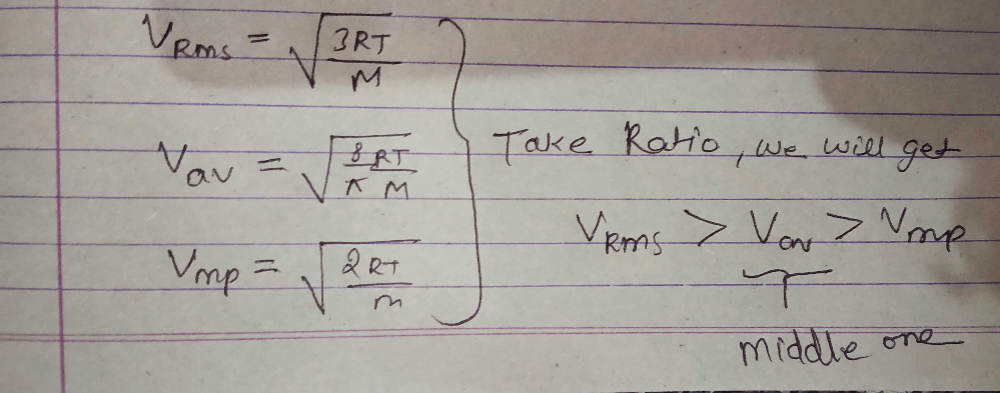 V_Rms = √(3RT/M)
V_av = √(8/π RT/M)
V_mp = √(2RT/m)
Take Ratio, we will get
V_Rms > V_av > V_mp
middle one